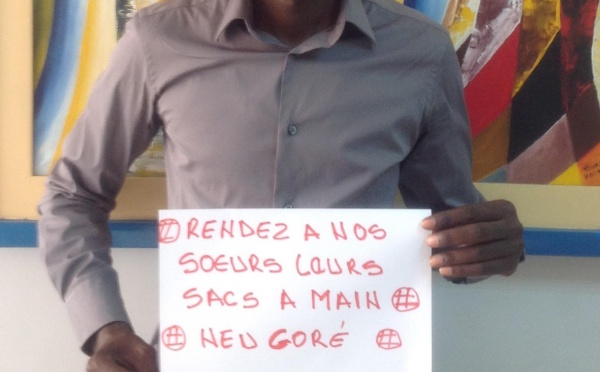 # RENDEZ A NOS
SOEURS LEURS
SACS A MAIN #
# NEU GORÉ #